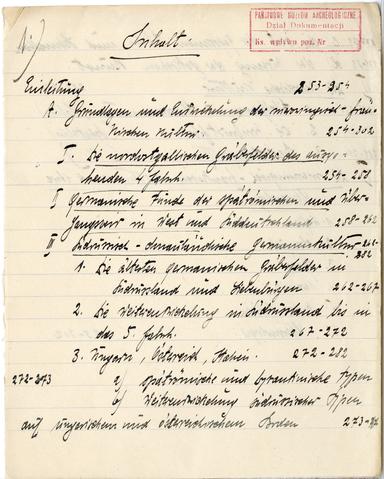 1)
PAŃSTWOWE MUZEUM ARCHEOLOGICZNE
Dział Dokumentacji
Ks. wpływu poz. Nr
Inhalt
Einleitung 253-254
A. Grundlagen und Entwickelung der merowingisch-frän-
kischen Kultur 254-302
I. Die nordostgallischen Gräberfelder des ausge-
henden 4 Jahrh. 254-258
II Germanische Funde der spätrömischen und Über-
gangszeit in West und Süddeutschland 258-262
III Südrussisch-donauländische Germanenkultur 262-
282
1. Die ältesten germanischen Gräberfelder in
Südrussland und Siebenbürgen 262-267
2. Die Weiterentwickelung in Südrussland bis in
das 5. Jahrh. 267-272
3. Ungarn, Österreich, Italien. 272-282
272-273 a) spätrömische und byzantinische Typen
b) Weiterentwickelung südrussischer Typen
auf ungarischem und österreichischem Boden 273-